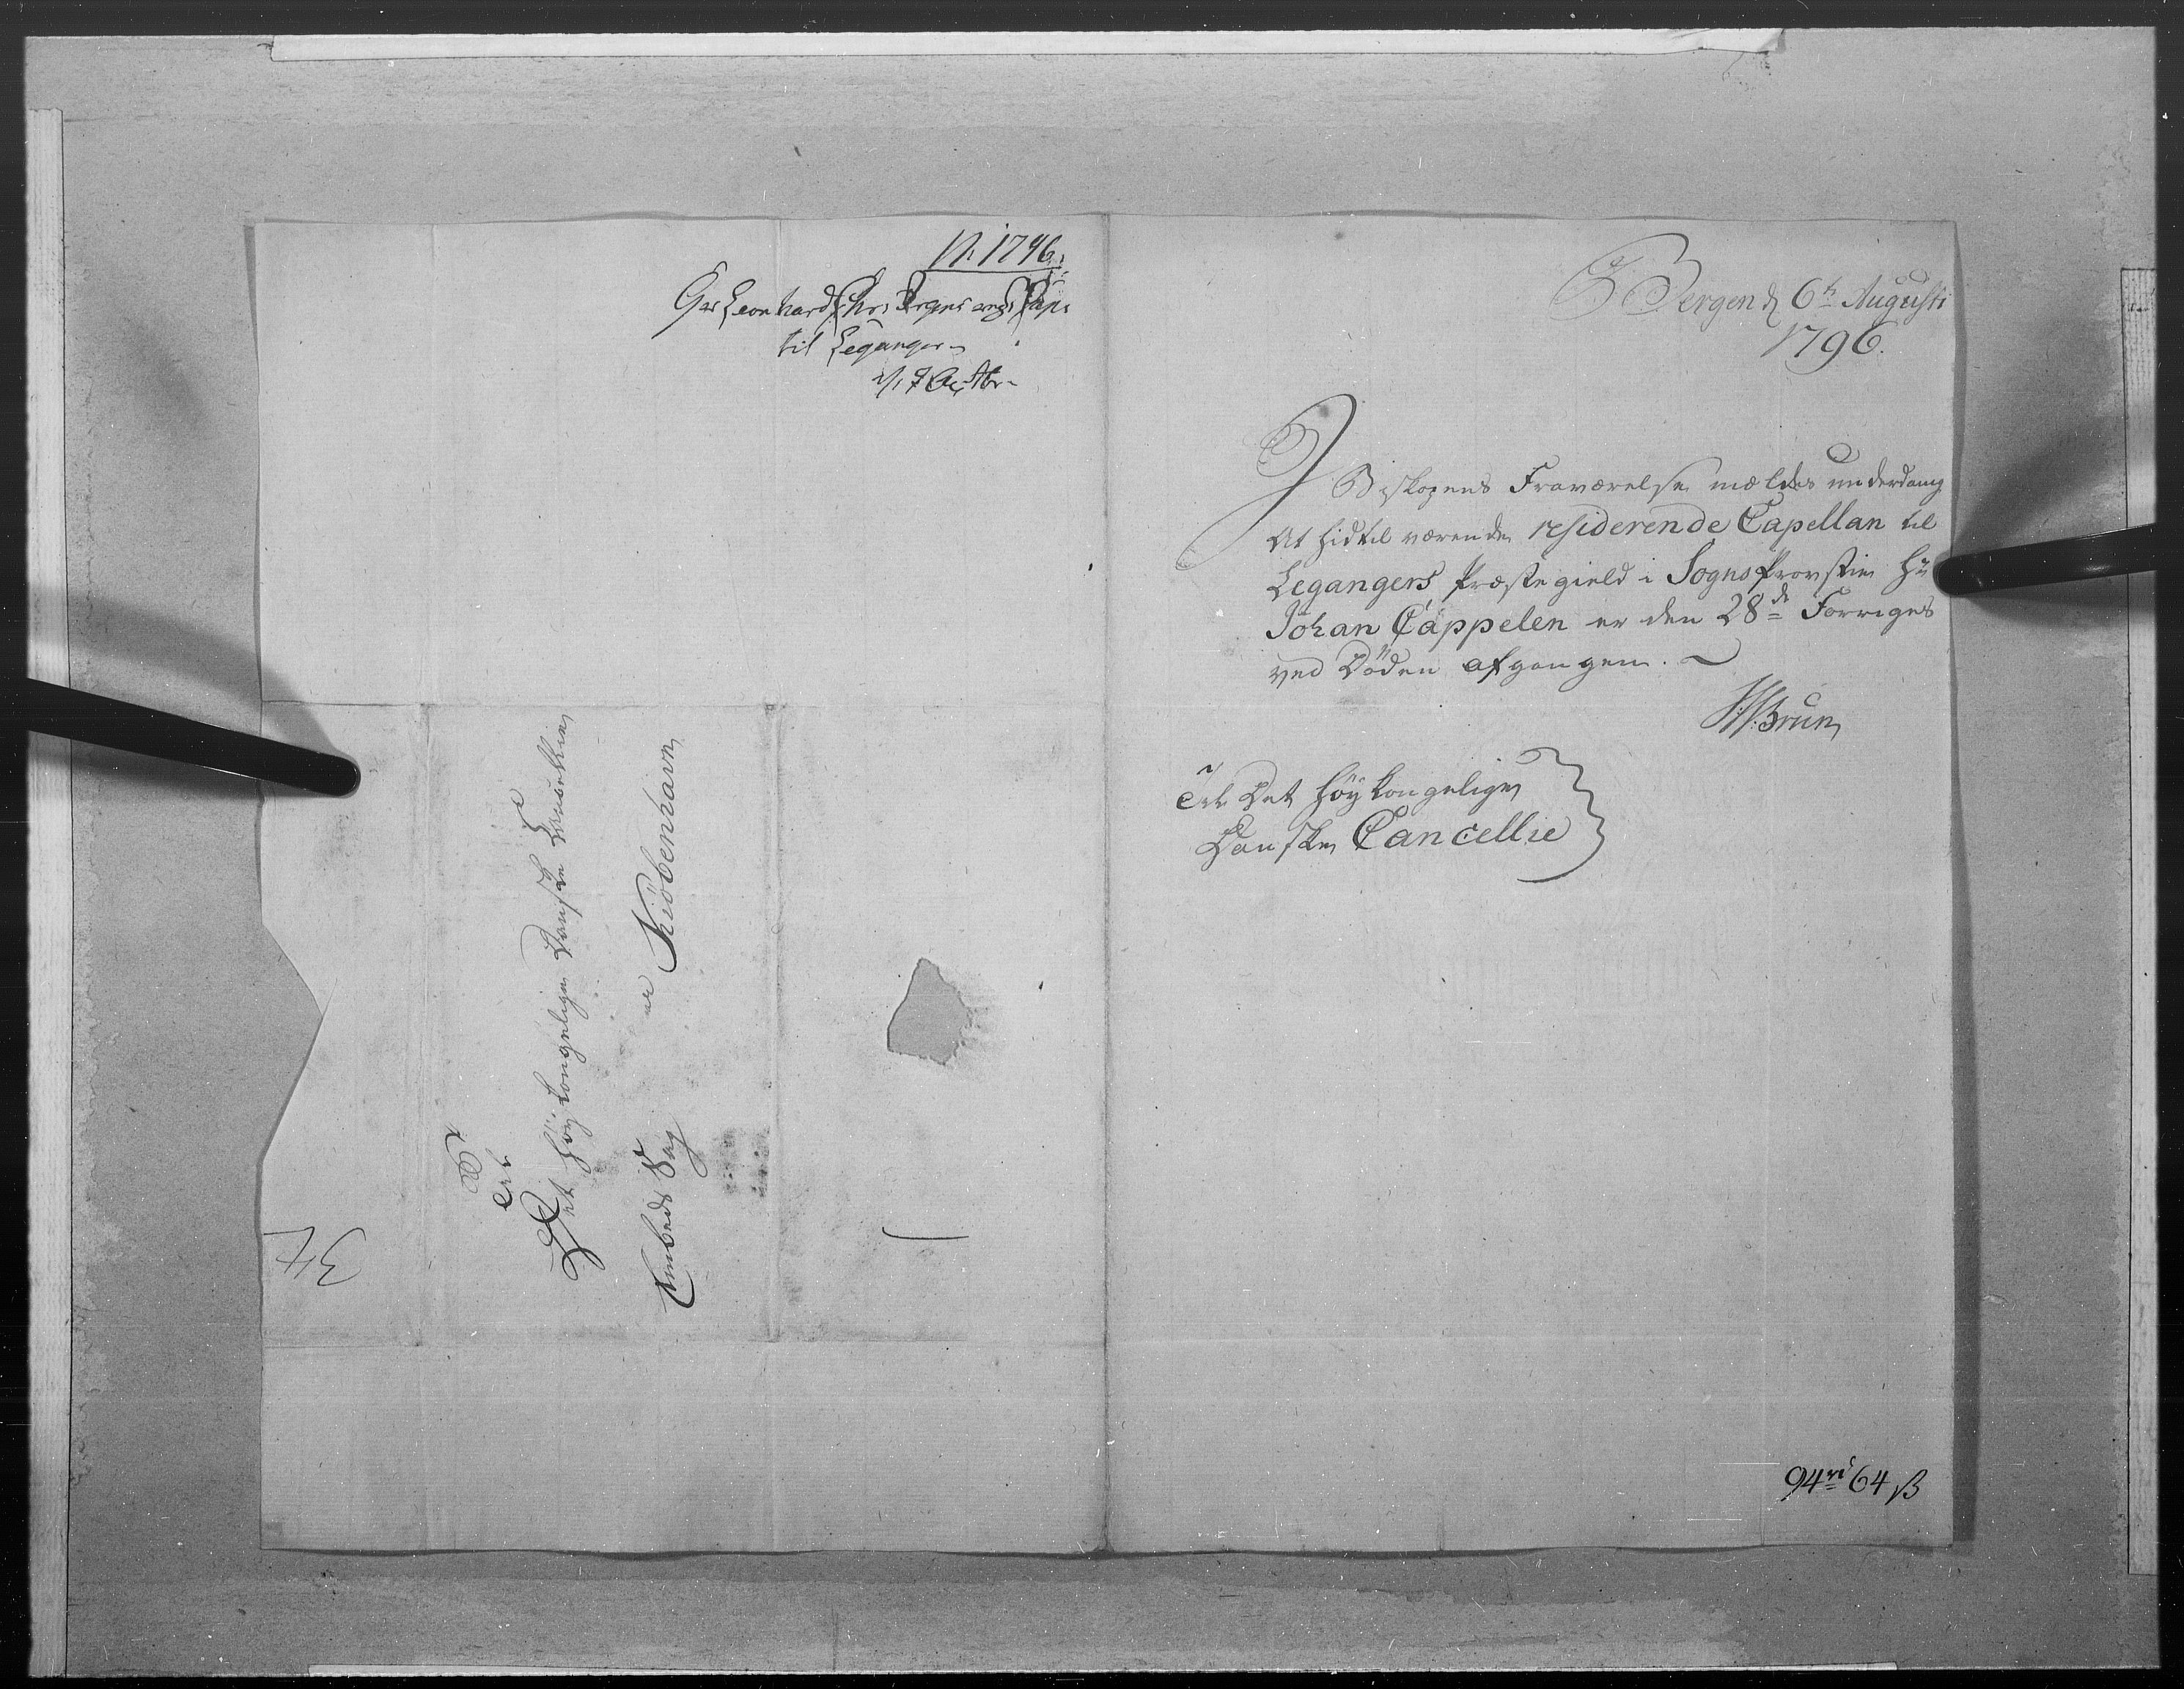 N. 1746.
Hr Leonhard Chr: Borgmann Cap:
til Leganger
Bergen d 6te Augusti
1796.
I Biskopens Fraværelse meldes underdanig
At hidtil værende residerende Capellan til
Legangers Præstegield i Sogns Provstie Hr
Johan Cappelen er den 28de Forriges
ved Döden afgangen.
J:N:Brun
Til Det Höykongelige
Danske Cancellie
94 rd 64 ß
Til
Det Höykongelige Danske Cancellie
Embeds Sag a Kiöbenhavn
34